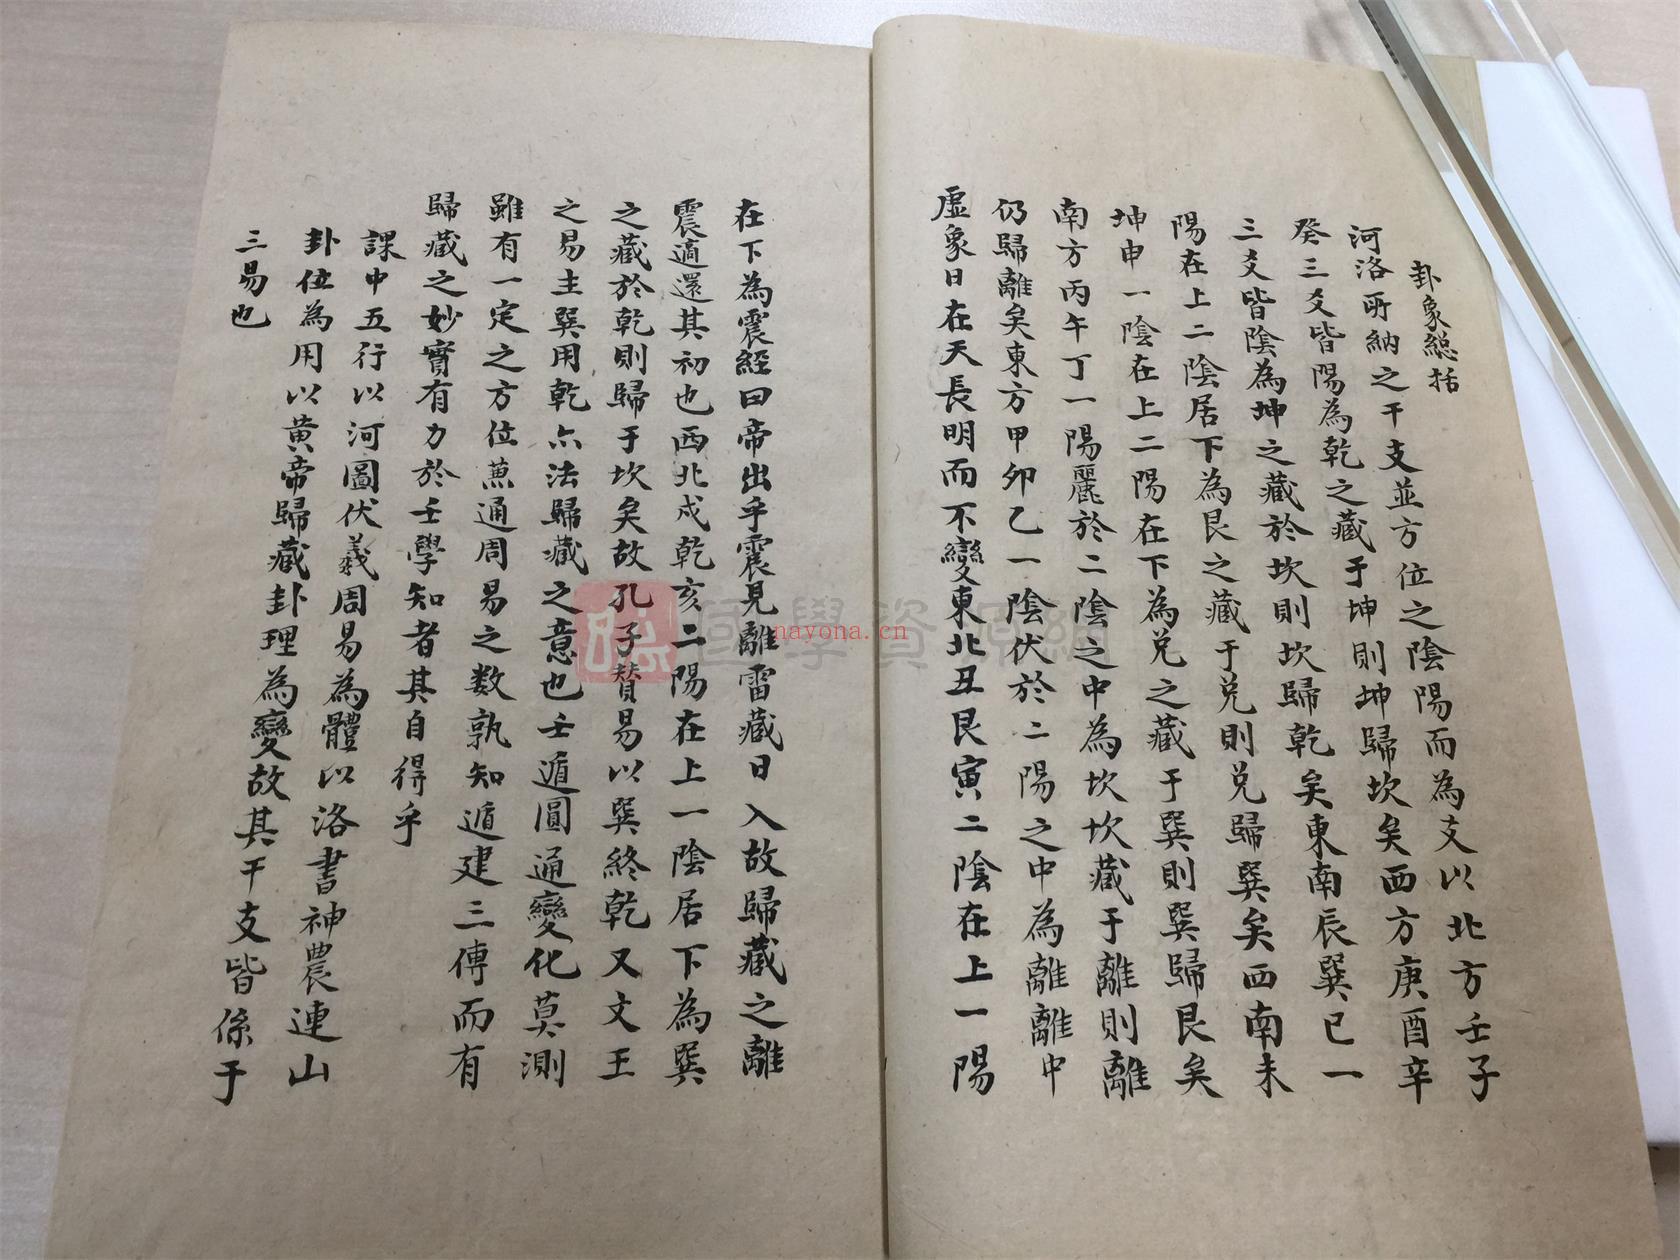 卦象總括
河洛所納之干支並方位之陰陽而為支以北方壬子
癸三爻皆陽為乾之藏于坤則坤歸坎矣西方庚酉辛
三爻皆陰為坤之藏於坎則坎歸乾矣東南辰巽巳一
陽在上二陰居下為艮之藏于兌則兌歸巽矣西南未
坤申一陰在上二陽在下為兌之藏于巽則巽歸艮矣
南方丙午丁一陽麗於二陰之中為坎坎藏于離則離
仍歸離矣東方甲卯乙一陰伏於二陽之中為離離中
虛象日在天長明而不變東北丑艮寅二陰在上一陽
在下為震經曰帝出乎震見離雷藏日入故歸藏之離
震適還其初也西北戌乾亥二陽在上一陰居下為巽
之藏於乾則歸于坎矣故孔子贊易以巽終乾又文王
之易主巽用乾亦法歸藏之意也壬遁圓通變化莫測
雖有一定之方位蕙通周易之数孰知遁建三傳而有
歸藏之妙實有力於壬學知者其自得乎
課中五行以河圖伏羲周易為體以洛書神農連山
卦位為用以黃帝歸藏卦理為變故其干支皆係于
三易也
國學資源網
nayona.cn